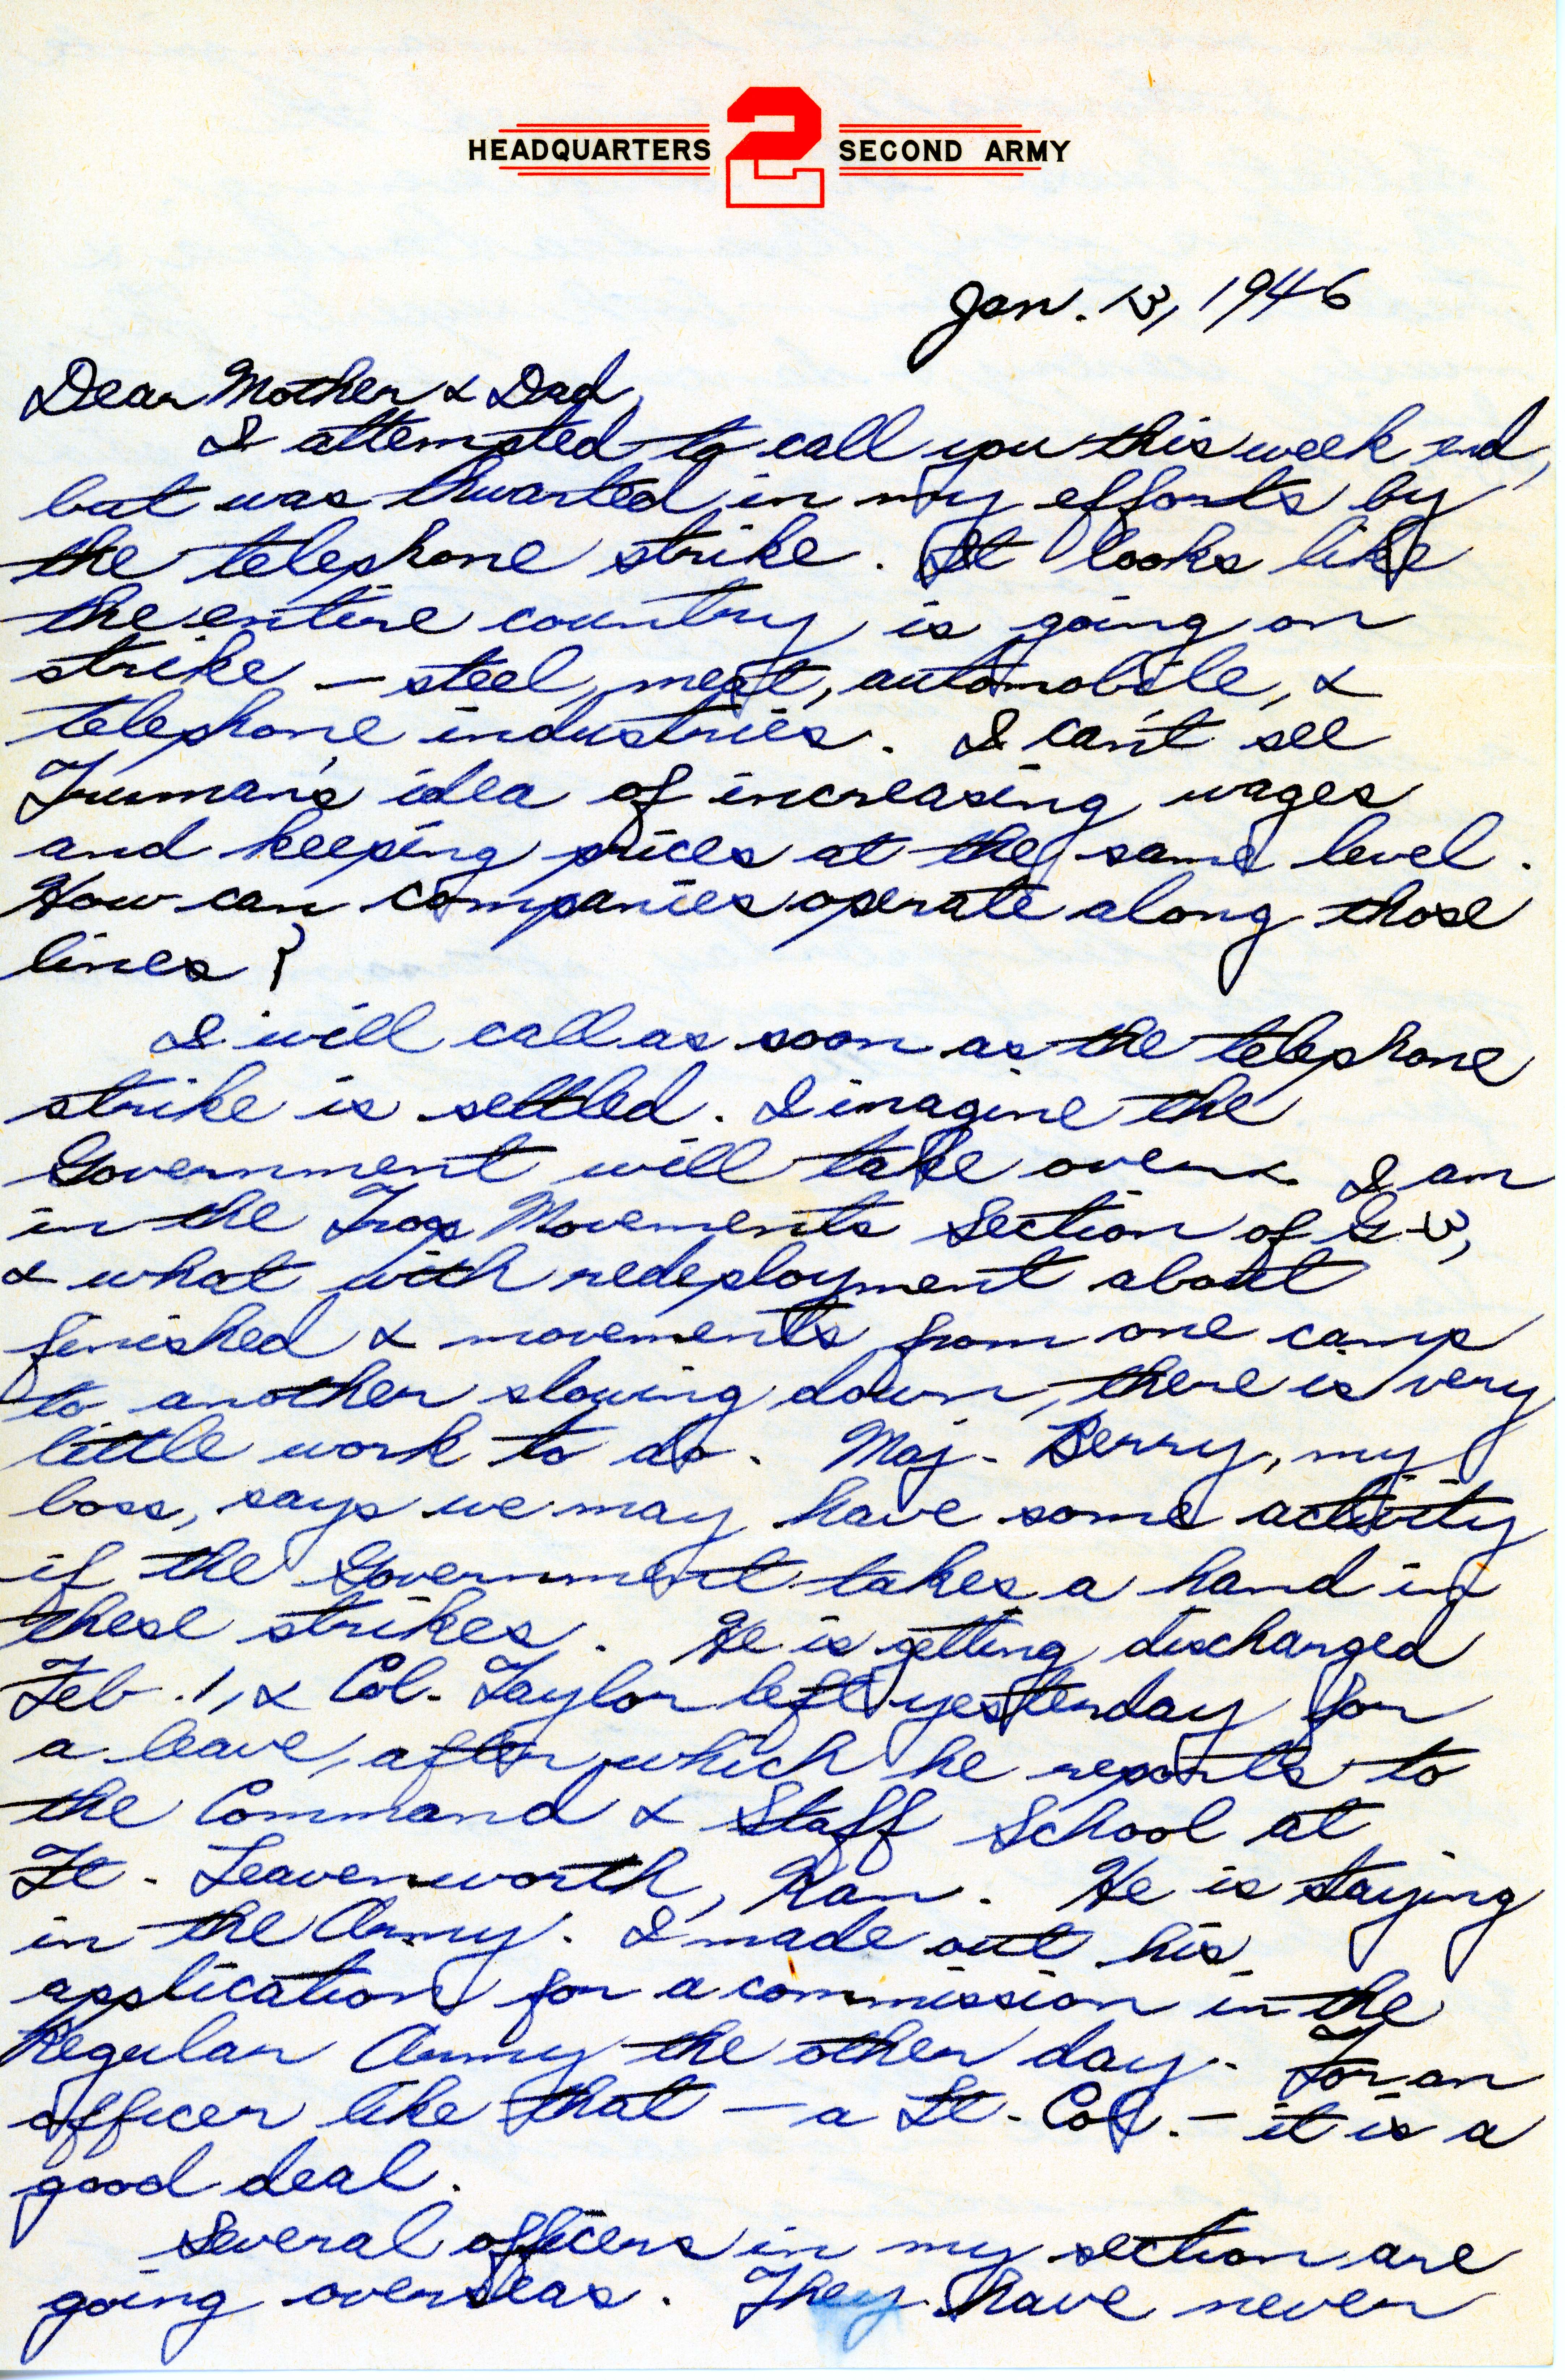 HEADQUARTERS 2 SECOND ARMY
Jan. 13, 1946
Dear Mother & Dad,
I attempted to call you this week end,
but was thwarted in my efforts by
the telephone strike. It looks like
the entire country is going on
strike — steel, meat, automobile, &
telephone industries. I can't see
Truman's idea of increasing wages
and keeping prices at the same level.
How can companies operate along those
lines?
I will call as soon as the telephone
strike is settled. I imagine the
Government will take over. I am
in the Troop Movements Section of G-3,
& what with redeployment about
finished & movements from one camp
to another slowing down, there is very
little work to do. Maj. Berry, my
boss, says we may have some activity
if the Government takes a hand in
these strikes. He is getting discharged
Feb. 1, & Col. Taylor left yesterday for
a leave, after which he reports to
the Command & Staff School at
Ft. Leavenworth, Kan. He is staying
in the Army. I made out his
application for a commission in the
Regular Army the other day. For an
officer like that — a Lt. Col. — it is a
good deal.
Several officers in my section are
going overseas. They have never